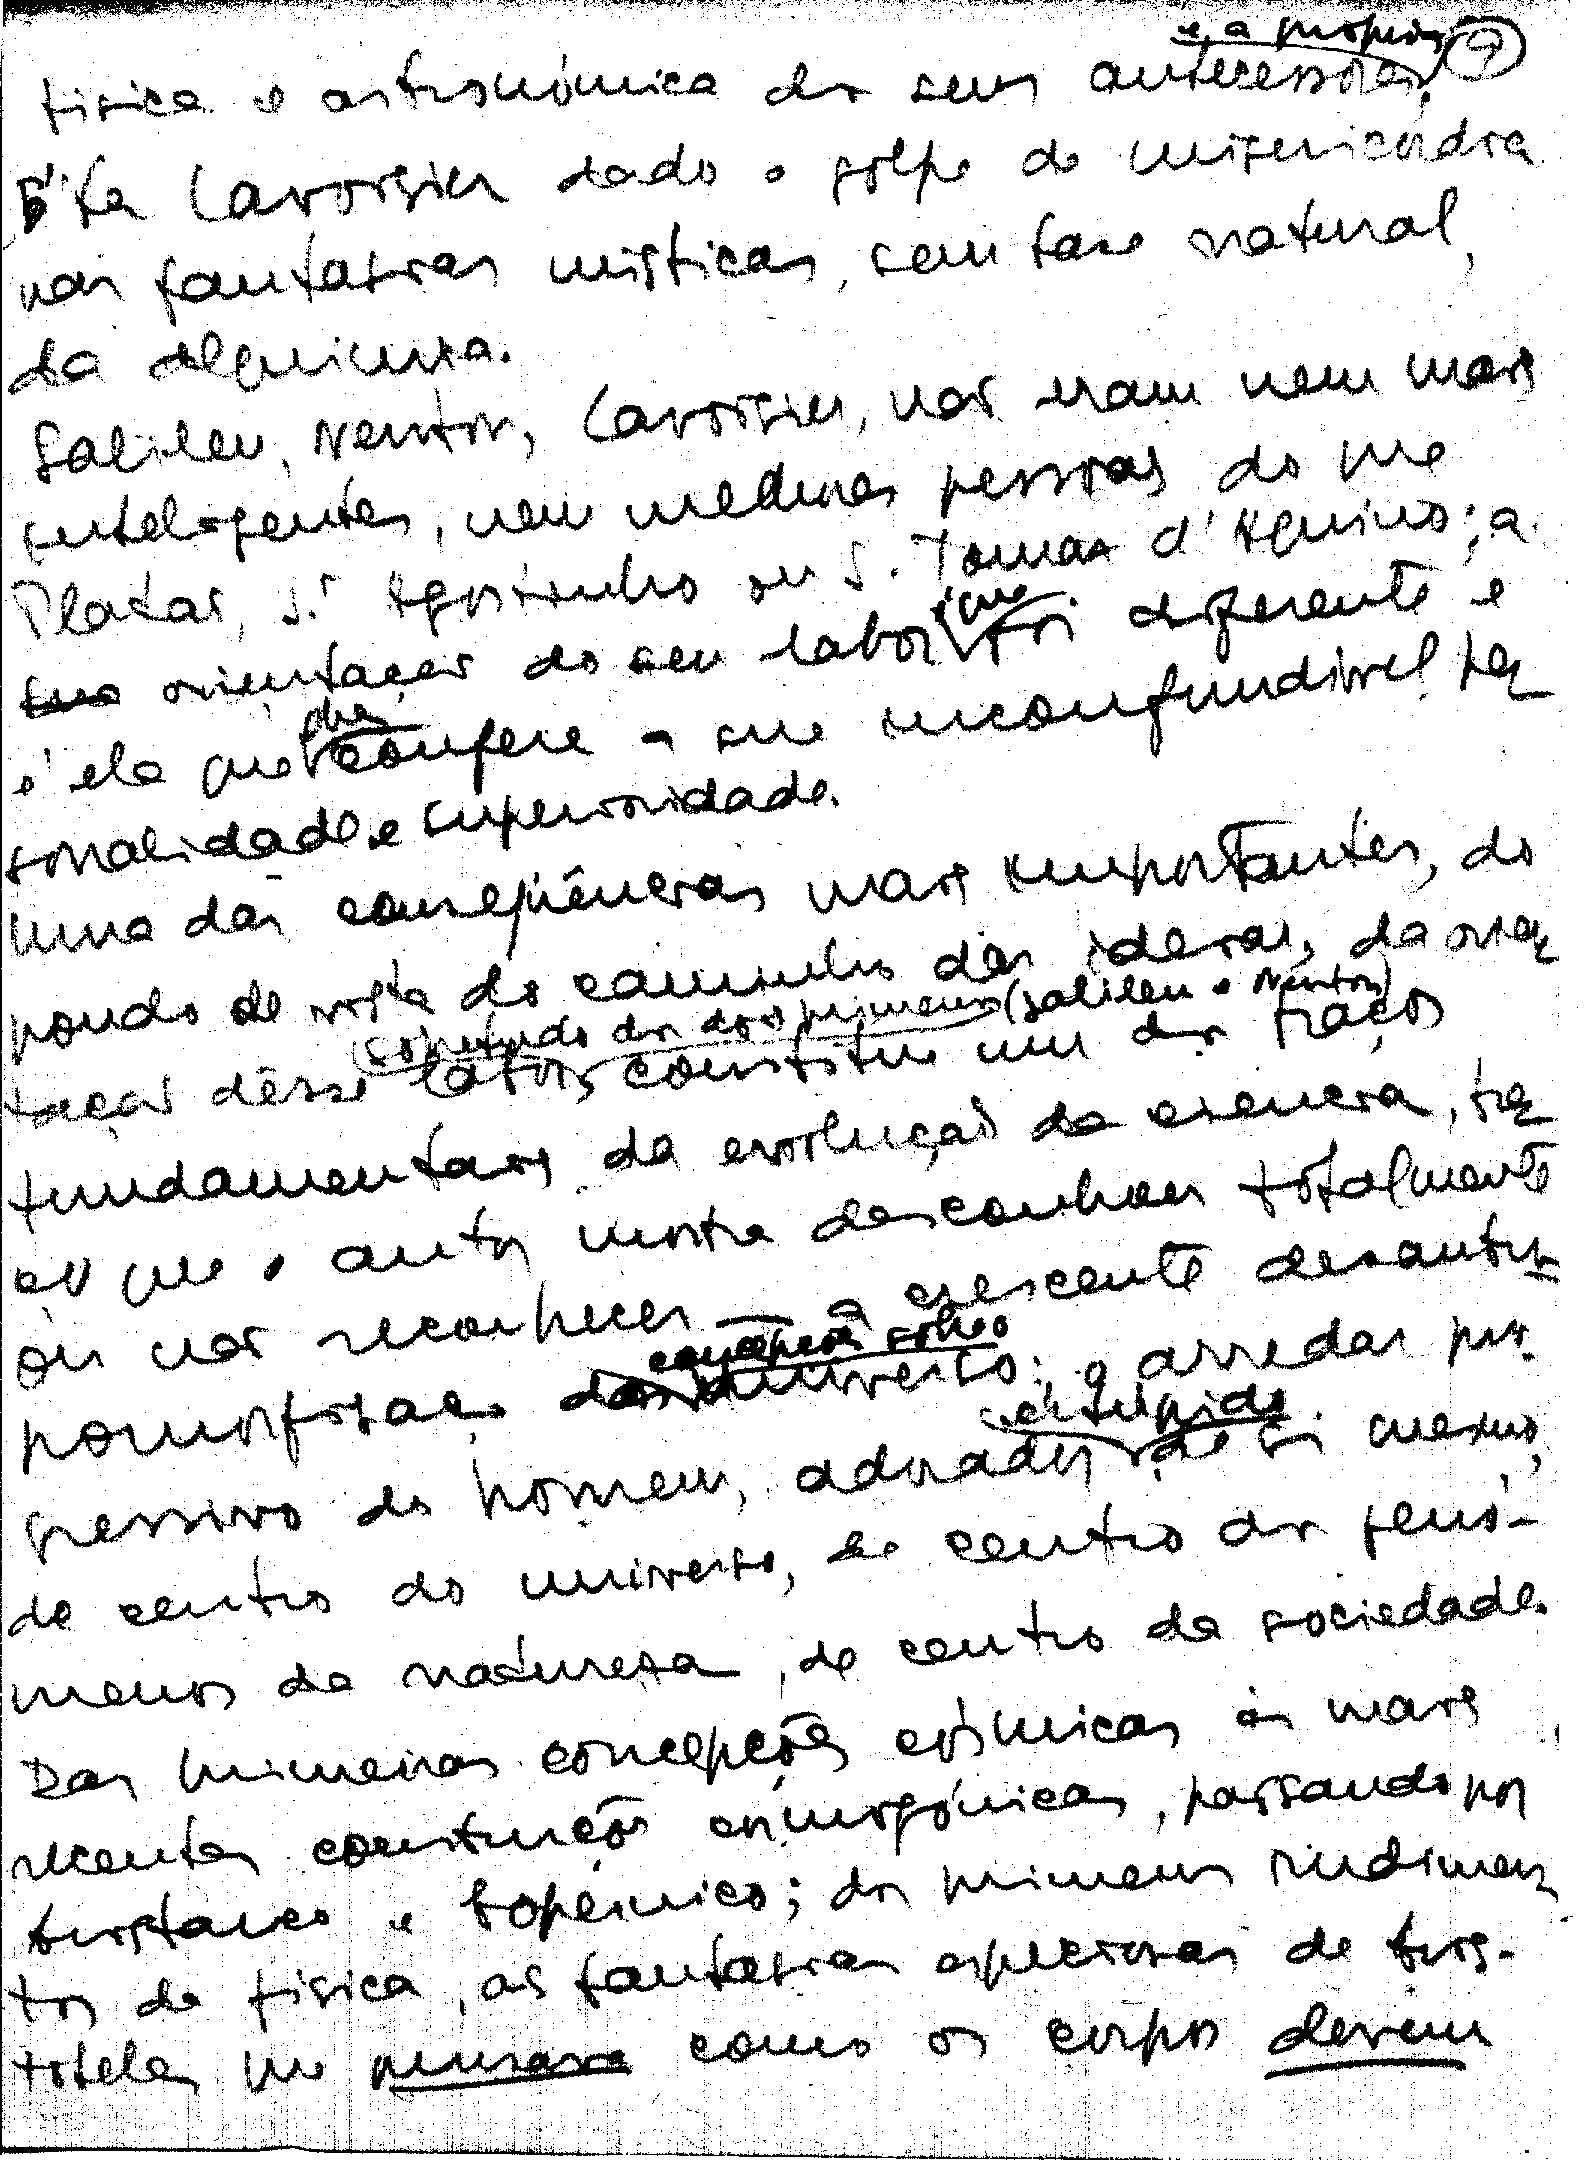 e a própria 9
física e astronómica dos seus antecessores;
E ter Lavoisier dado o golpe de misericórdia
nas fantasias místicas, sem base natural,
da alquimia.
Galileu, Newton, Lavoisier, não eram nem mais
inteligentes, nem melhores pessoas do que
Platão, S.to Agostinho ou S. Tomas d'Aquino; a
orientação do seu labor é que foi diferente e
é ela que lhes confere a sua inconfundível per
sonalidade e superioridade.
Uma das conseqüências mais importantes, do
ponto de vista do caminho das ideias, da orien
tação dêsse labor, (sobretudo dos dois primeiros (Galileu e Newton)) constitue um dos traços
fundamentais da evolução da ciencia, tra
ço que o autor mostra desconhecer totalmente
ou não reconhecer — a crescente desantro
pomorfisação das concepções sobre o universo; o arredar pro
gressivo do homem, adorador estúpido de si mesmo,
de centro do universo, de centro dos fenó-
menos da natureza, de centro da sociedade.
Das primeiras concepções cósmicas ás mais
recentes construções cosmogónicas, passando por
Aristarco e Copérnico; dos primeiros rudimen
tos de física, as fantasias especiosas de Aris-
toteles que pensava como os corpos devem